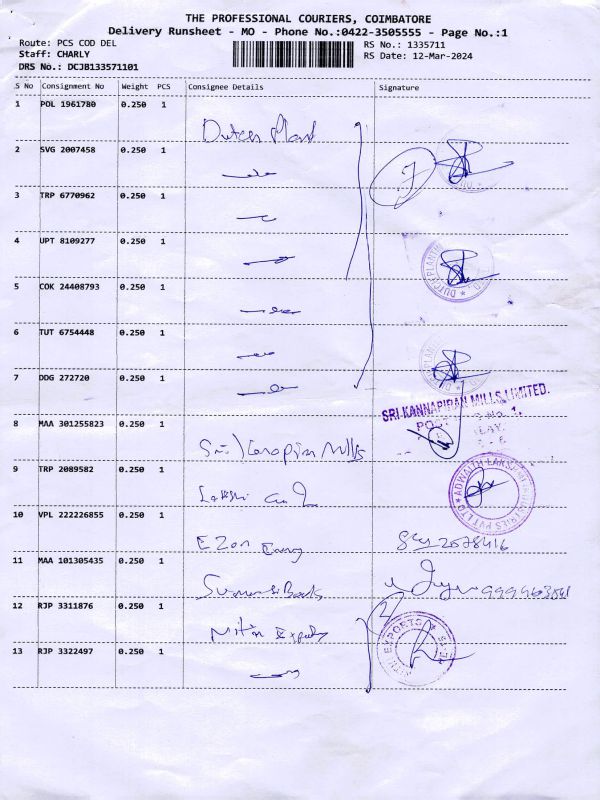 THE PROFESSIONAL COURIERS, COIMBATORE
Delivery Runsheet - MO - Phone No.:0422-3505555 - Page No.:1
Route: PCS COD DEL
RS No.: 1335711
Staff: CHARLY
RS Date: 12-Mar-2024
DRS No.: DCJB133571101
S No Consignment No Weight PCS Consignee Details Signature
1 POL 1961780 0.250 1
Dutch Plant
2 SVG 2007458 0.250 1
7
3 TRP 6770962 0.250 1
4 UPT 8109277 0.250 1
5 COK 24408793 0.250 1
6 TUT 6754448 0.250 1
7 DDG 272720 0.250 1
SRI KANNAPIRAN MILLS LIMITED.
8 MAA 301255823 0.250 1
Mills
9 TRP 2089582 0.250 1
ADWAITH LAKSHMI INDUSTRIES PVT LTD
10 VPL 222226855 0.250 1
Ezon
11 MAA 101305435 0.250 1
12 RJP 3311876 0.250 1
Nithin Exports
2
EXPORTS
13 RJP 3322497 0.250 1